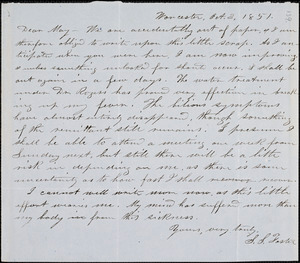 Worcester, Oct. 5, 1851.
Dear May - We are accidentally out of paper, & I am
therefore obliged to write upon this little scrape. As I an-
ticipate when you were here, I am now improving
& unless something is looked for should occur, I shall be
out again in a few days. The water treatment
under Dr. Rogers has proved very effective in break-
ing up my fever. The bilious symptoms
have almost entirely disappeared, though something
of the remittent still remains. I presume I
shall be able to attend a meeting one week from
Sunday next, but still there will be a little
risk in depending on me, as there is some
uncertainty as to how fast I shall
I cannot well write more now, as this little
effort wearies me. My mind has suffered more than
my body in from this sickness.
Yours, very truly,
S. S. Foster